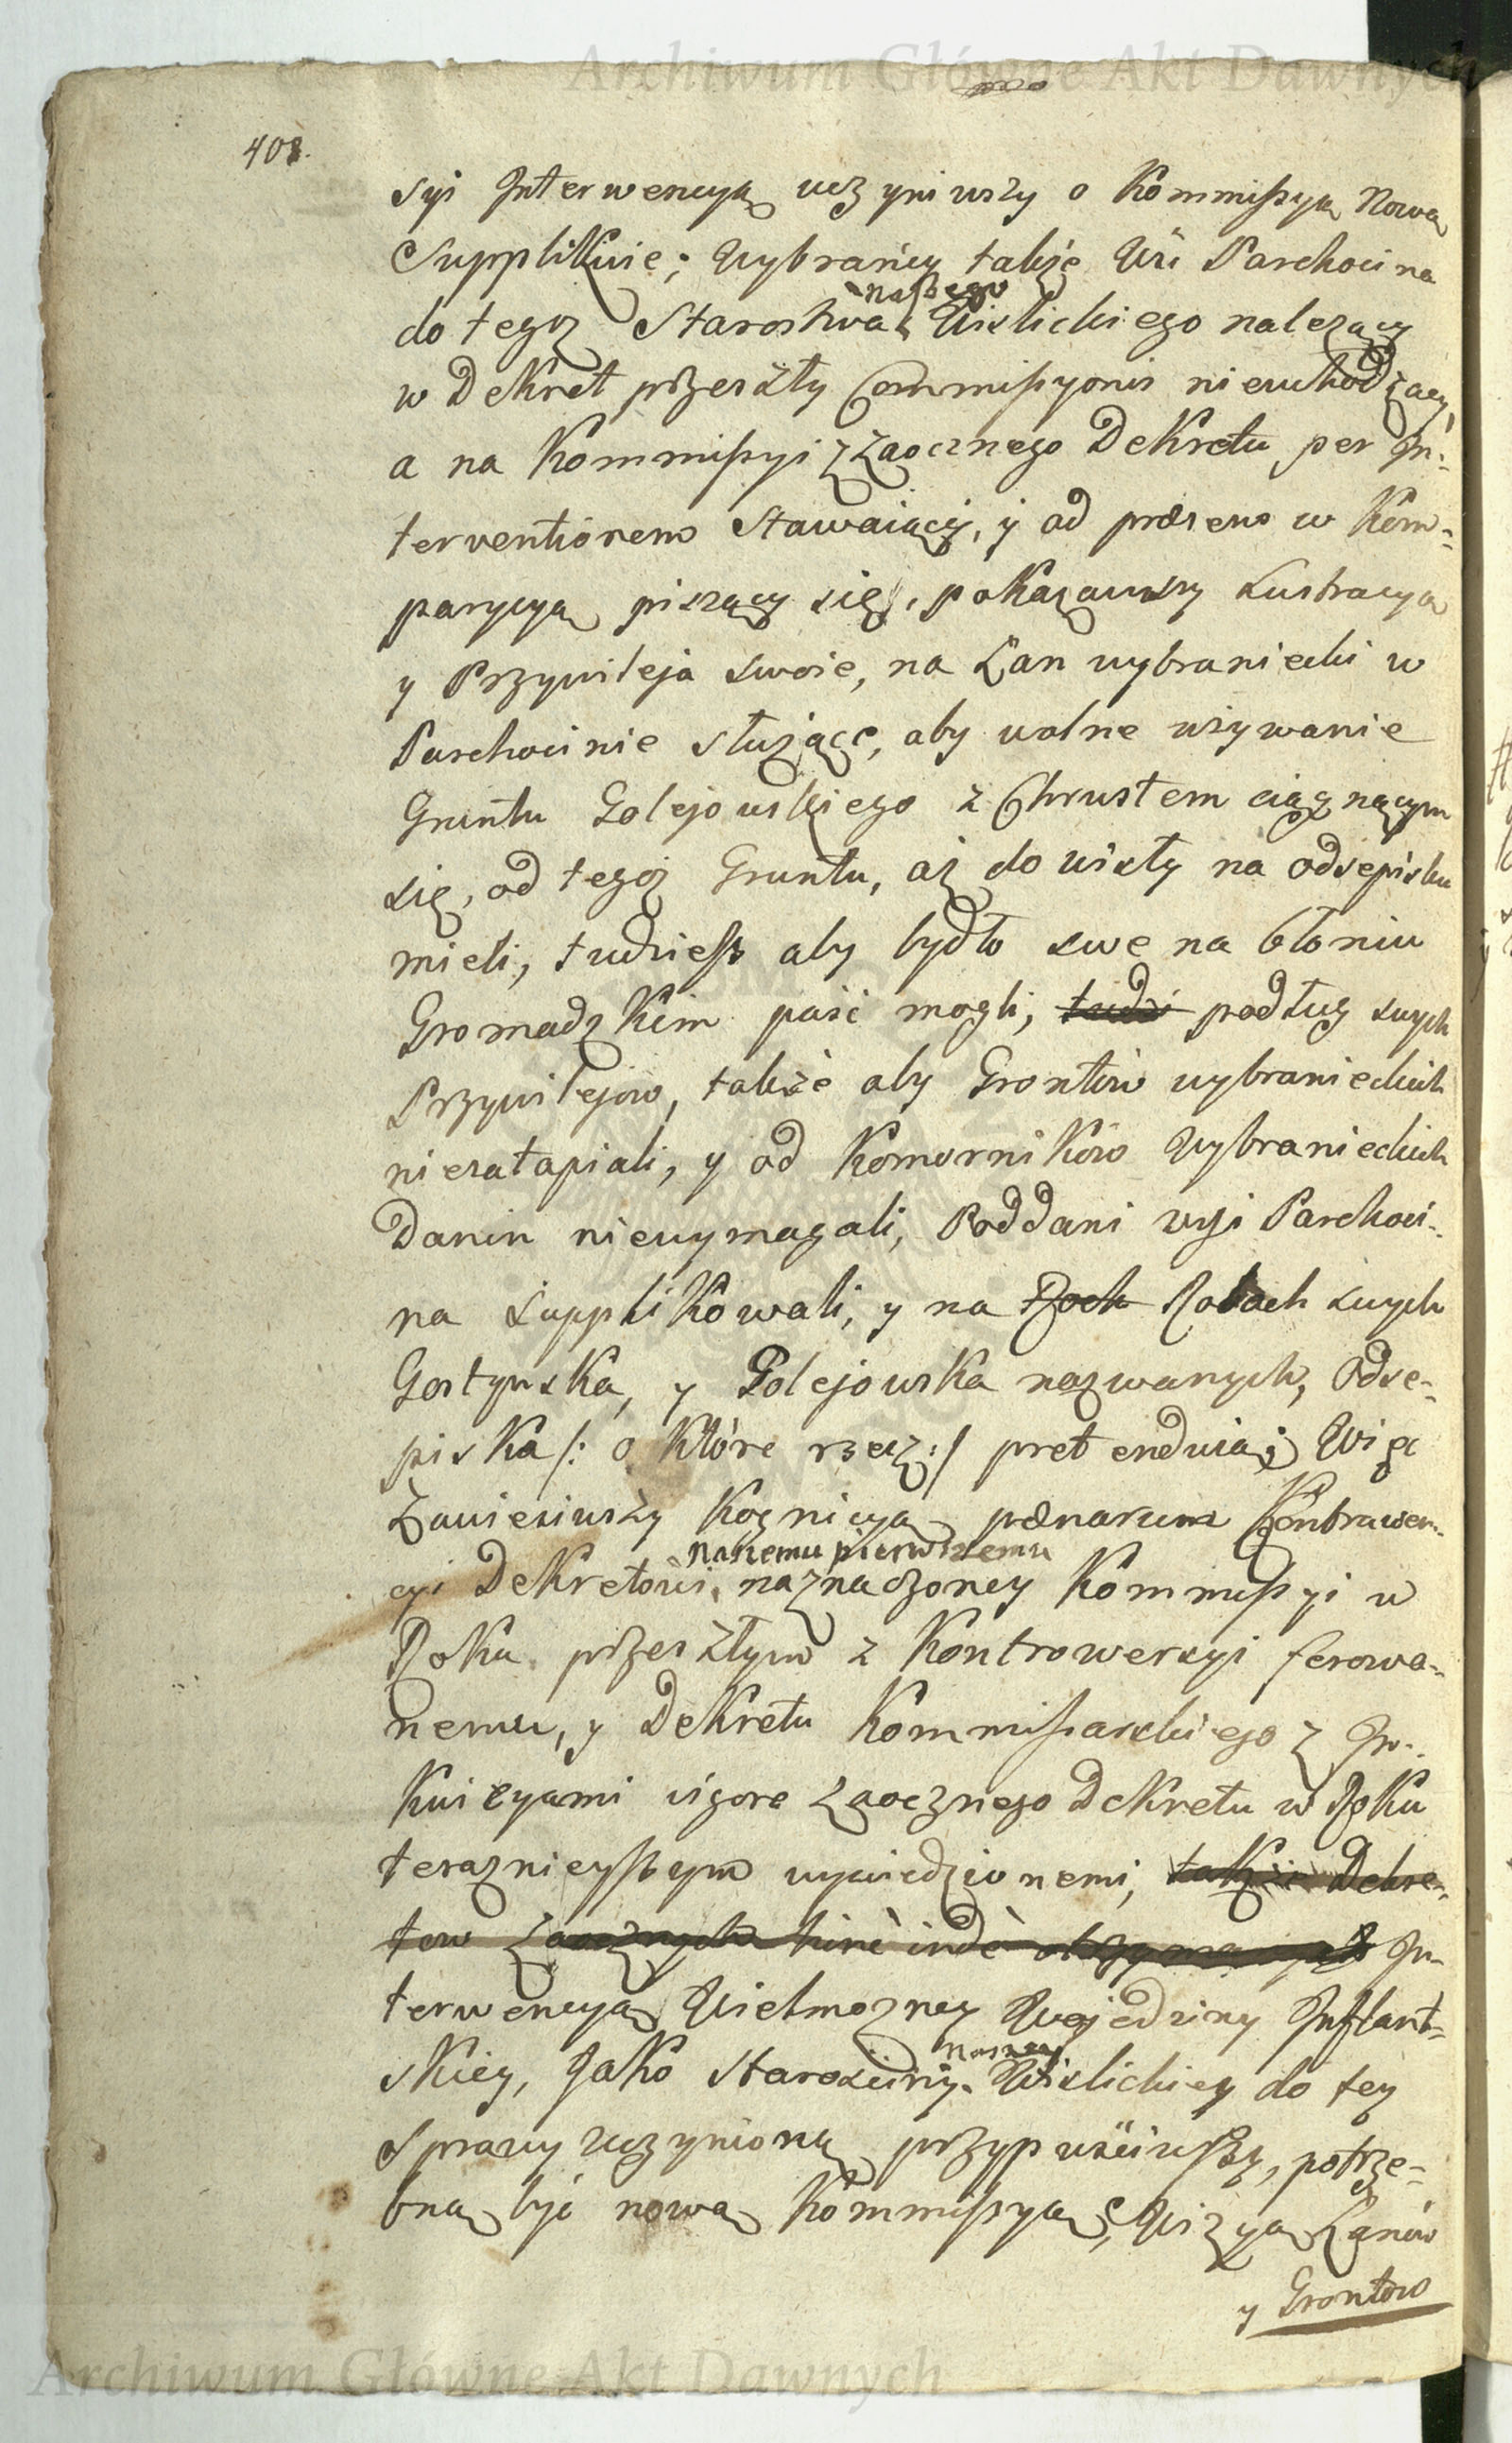 Archiwum Główne Akt Dawnych
408.
syi Interwencyą uczyniwszy o Kommissyą Nową
Supplikuie; Wybrańcy także Wsi Parchocina
do tegoż Starostwa naszego Wiślickiego należący
w Dekret przeszły Commissyonis niewchodzący,
a na Kommissyi z Zaocznego Dekretu per In-
terventionem Stawaiący, y ad præsens w Kom-
parycyą piszący się, pokazawszy Lustracyą
y Przywileja swoie, na Łan wybraniecki w
Parchocinie służące, aby wolne używanie
Gruntu Golejowskiego z Chrustem ciągnącym
się, od tegoż Gruntu, aż do wisły na odsepisku
mieli, tudziesz aby bydło swe na błoniu
Gromadzkim paść mogli, tudzi podług swych
Przywilejow, także aby Grontów wybranieckich
niezatapiali, y od Komorników Wybranieckich
Danin niewymagali, Poddani wsi Parchoci-
na Supplikowali, y na Rock Rolach swych
Gostyńska, y Golejowska nazwanych, Odse-
piska /: o które rzecz :/ pretenduią; Więc
Zawiesiwszy Kognicyą pœnarum Kontrawen-
cyi Dekretowi, naszemu pierwszemu naznaczoney Kommissyi w
Roku przeszłym z Kontrowersyi ferowa-
nemu, y Dekretu Kommissarskiego z In-
kwizyami vigore Zaocznego Dekretu w Roku
teraznieyszym wywiedzionemi, także Dekre-
tow Zaocznych hinc inde otrzyma In-
terwencyą Wielmożney Wojedziny Inflant-
skiey, Jako Starościny naszey Wiślickiey do tey
Sprawy uczynioną przypuściwszy, potrze-
bną być nową Kommissyą, Wizyą Łanów
y Grontow
Archiwum Główne Akt Dawnych